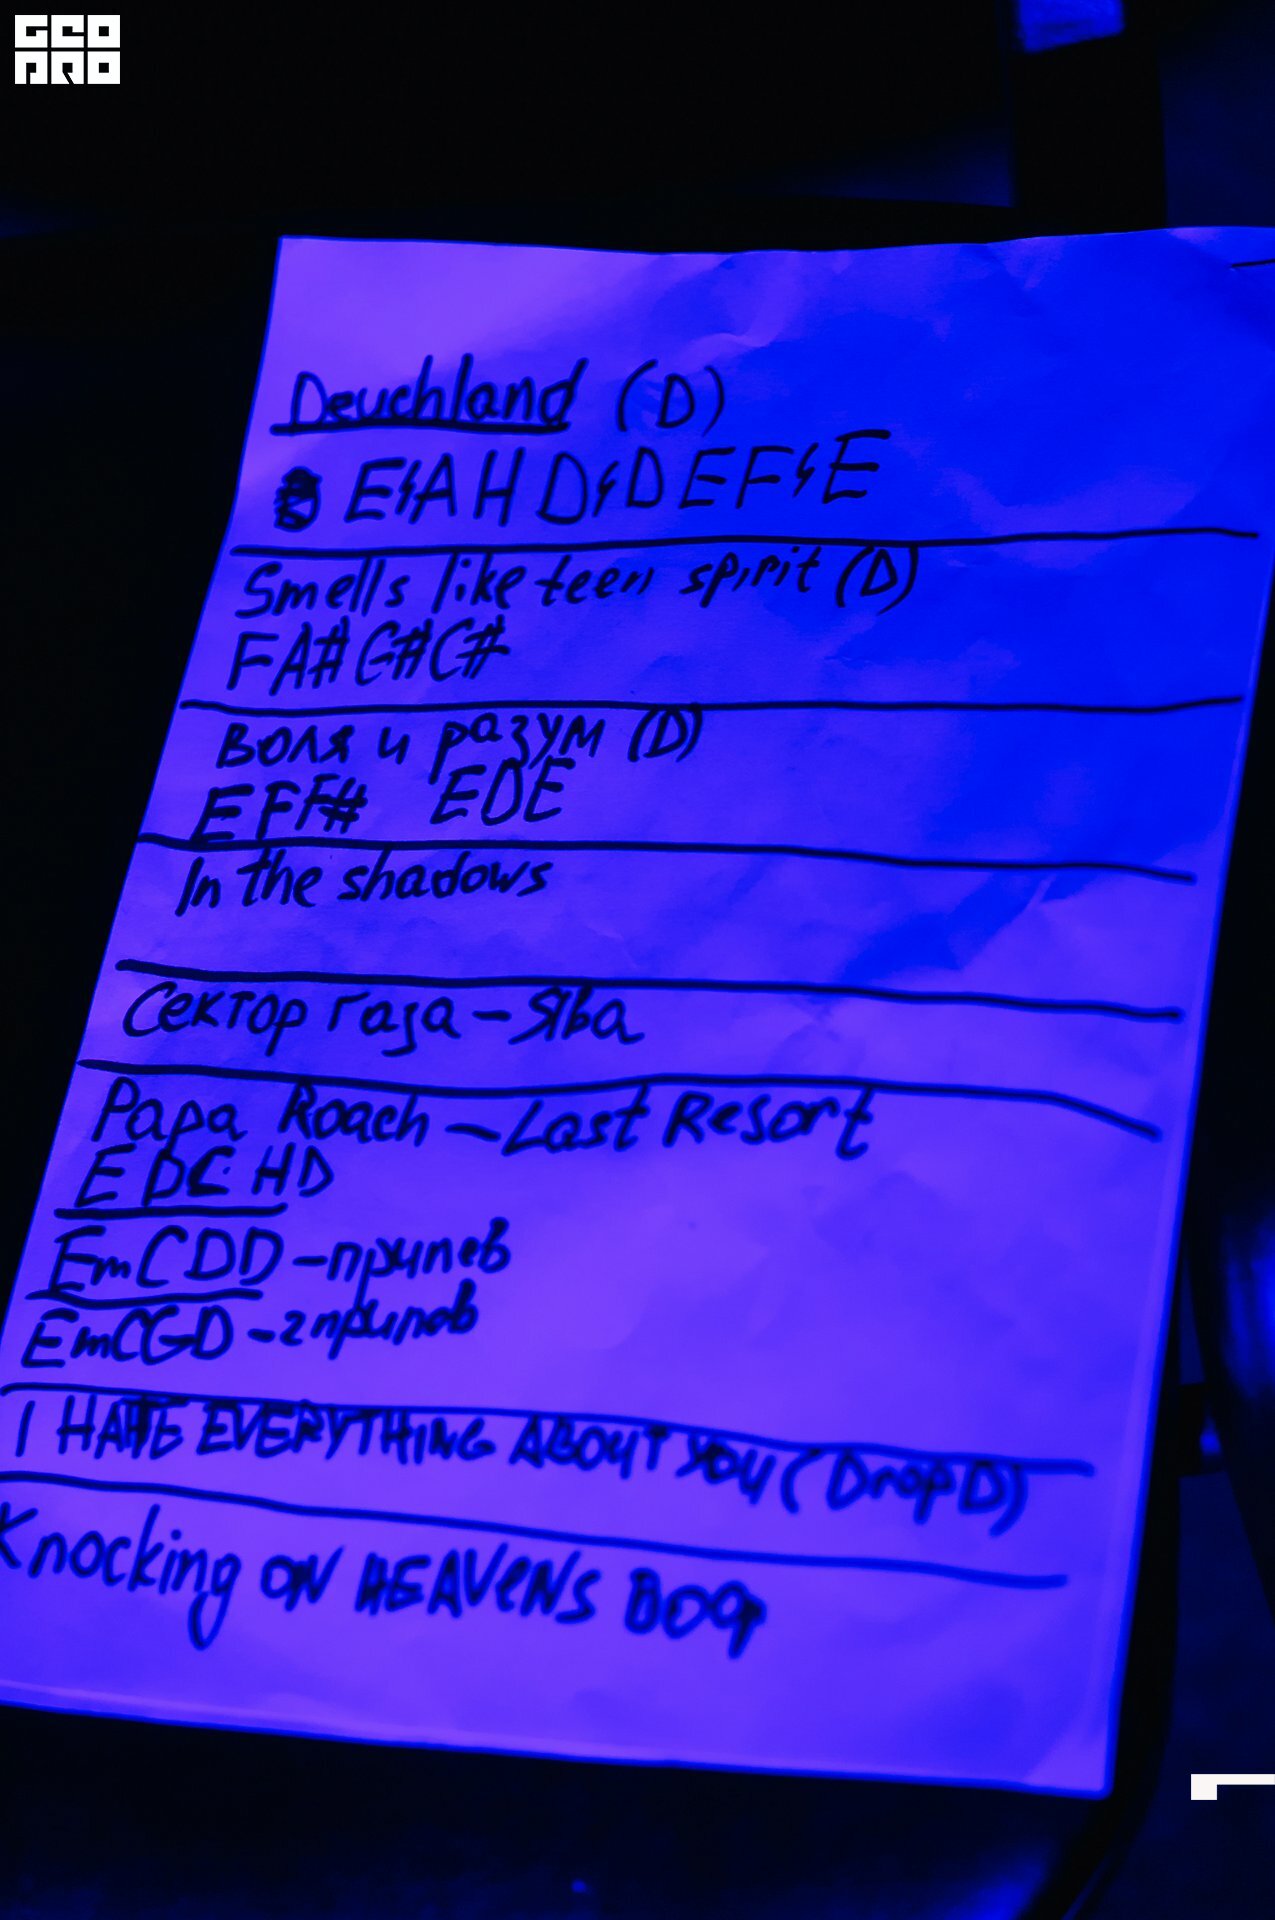 GEO
PRO
Deuchland (D)
E A H D D E F E
Smells like teen spirit (D)
FA#G#C#
Воля и разум (D)
EFF# EDE
In the shadows
Сектор газа - Ява
Papa Roach - Last Resort
E DC HD
EmCDD - припев
EmCGD - 2 припев
I HATE EVERYTHING ABOUT YOU (Drop D)
Knocking ON HEAVENS